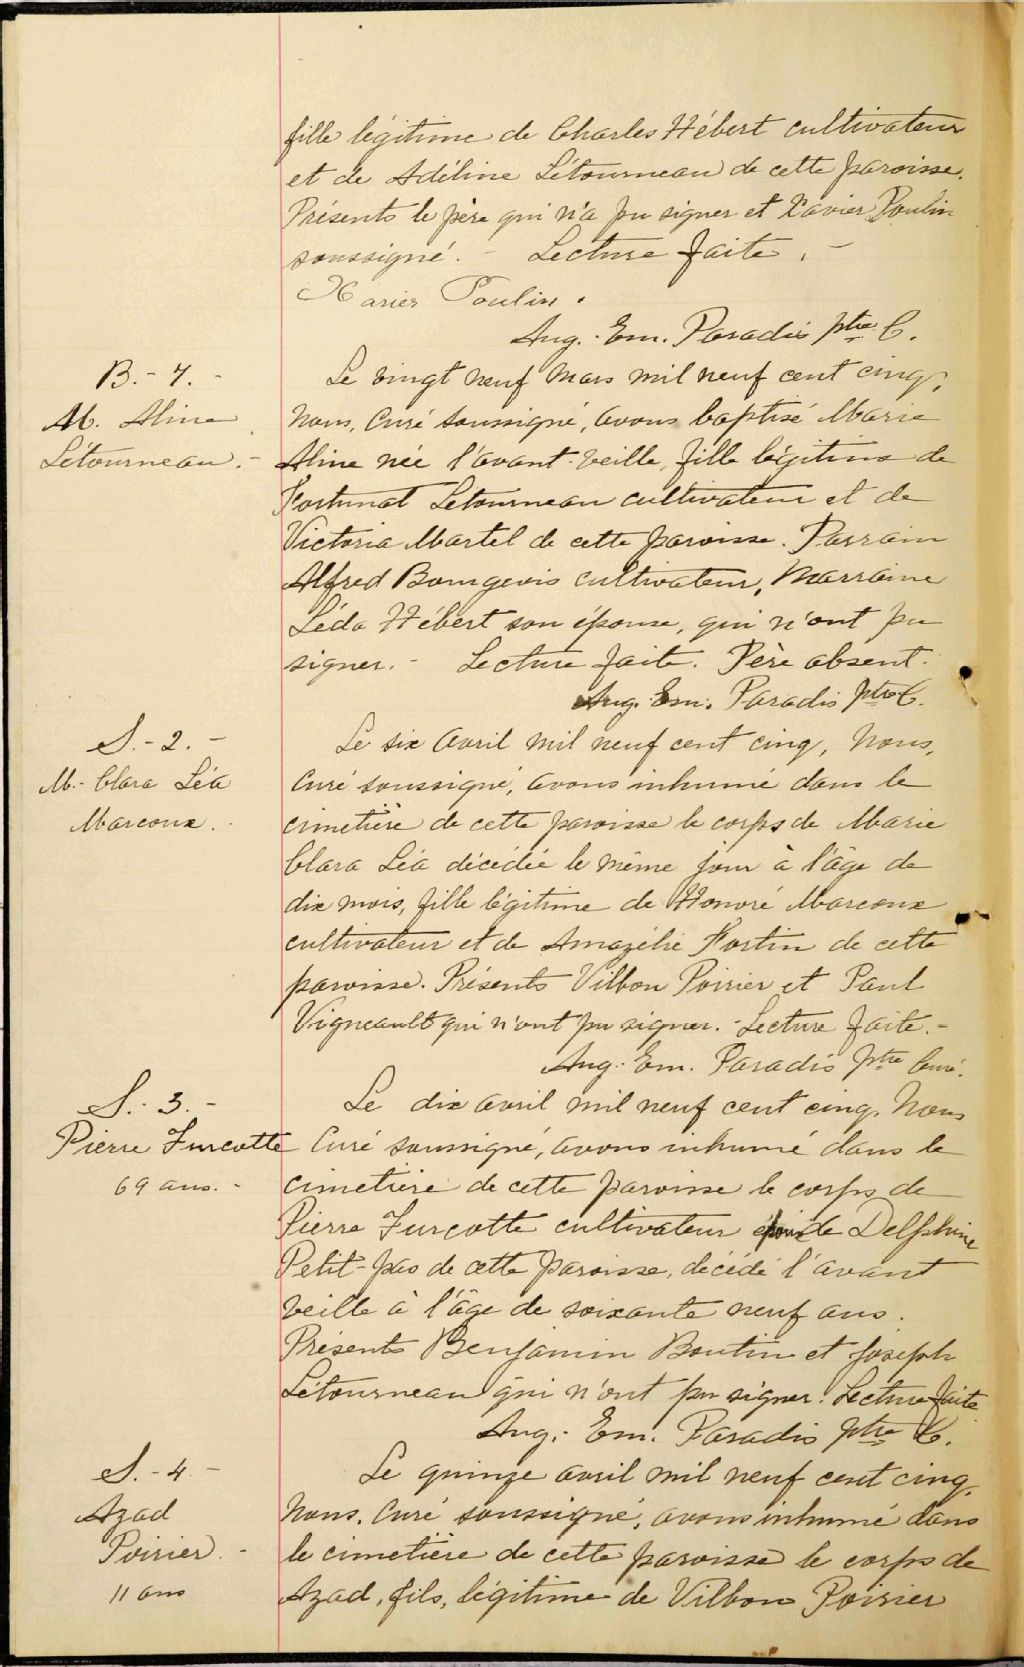 fille légitime de Charles Hébert cultivateur
et de Adéline Létourneau de cette paroisse.
Présents le père qui n'a pu signer et Xavier Poulin
soussigné. - Lecture faite. -
Xavier Poulin.
Aug. Em. Paradis ptre C.
B.- 7. -
M. Aline
Létourneau. -
Le vingt neuf Mars mil neuf cent cinq,
Nous, Curé soussigné, avons baptisé Marie
Aline née l'avant-veille, fille légitime de
Fortunat Letourneau cultivateur et de
Victoria Martel de cette paroisse. Parrain
Alfred Bourgeois cultivateur, Marraine
Léda Hébert son épouse, qui n'ont pu
signer. - Lecture faite. Père absent.
Aug. Em. Paradis ptre C.
S.- 2. -
M.- Clara Léa
Marcoux.
Le six Avril mil neuf cent cinq, Nous,
Curé soussigné, avons inhumé dans le
cimetière de cette paroisse le corps de Marie
Clara Léa décédée le même jour à l'âge de
dix mois, fille légitime de Honoré Marcoux
cultivateur et de Amazélie Fortin de cette
paroisse. Présents Vilbon Poirier et Paul
Vigneault qui n'ont pu signer. - Lecture faite. -
Aug. Em. Paradis Ptre Curé.
S.- 3. -
Pierre Turcotte
69 ans. -
Le dix avril mil neuf cent cinq, Nous
Curé soussigné, avons inhumé dans le
cimetière de cette paroisse le corps de
Pierre Turcotte cultivateur époux de Delphine
Petit-pas de cette paroisse, décédé l'avant
veille à l'âge de soixante neuf ans.
Présents Benjamin Boutin et Joseph
Létourneau qui n'ont pu signer. Lecture faite
Aug. Em. Paradis ptre C.
S.- 4. -
Azad
Poirier. -
11 ans
Le quinze avril mil neuf cent cinq,
Nous, Curé soussigné, avons inhumé dans
le cimetière de cette paroisse le corps de
Azad, fils, légitime de Vilbon Poirier